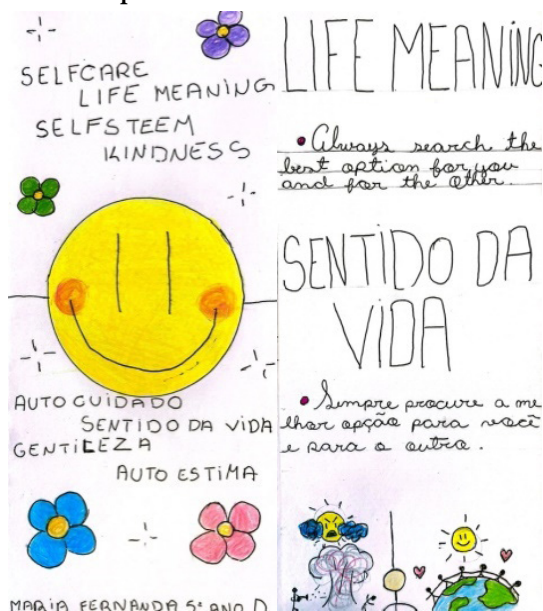 SELFCARE
LIFE MEANING
SELFSTEEM
KINDNESS
AUTO CUIDADO
SENTIDO DA VIDA
GENTILEZA
AUTO ESTIMA
MARIA FERNANDA 5º ANO D
LIFE MEANING
• Always search the
best option for you
and for the other.
SENTIDO DA
VIDA
• Sempre procure a me
lhor opção para você
e para o outro.